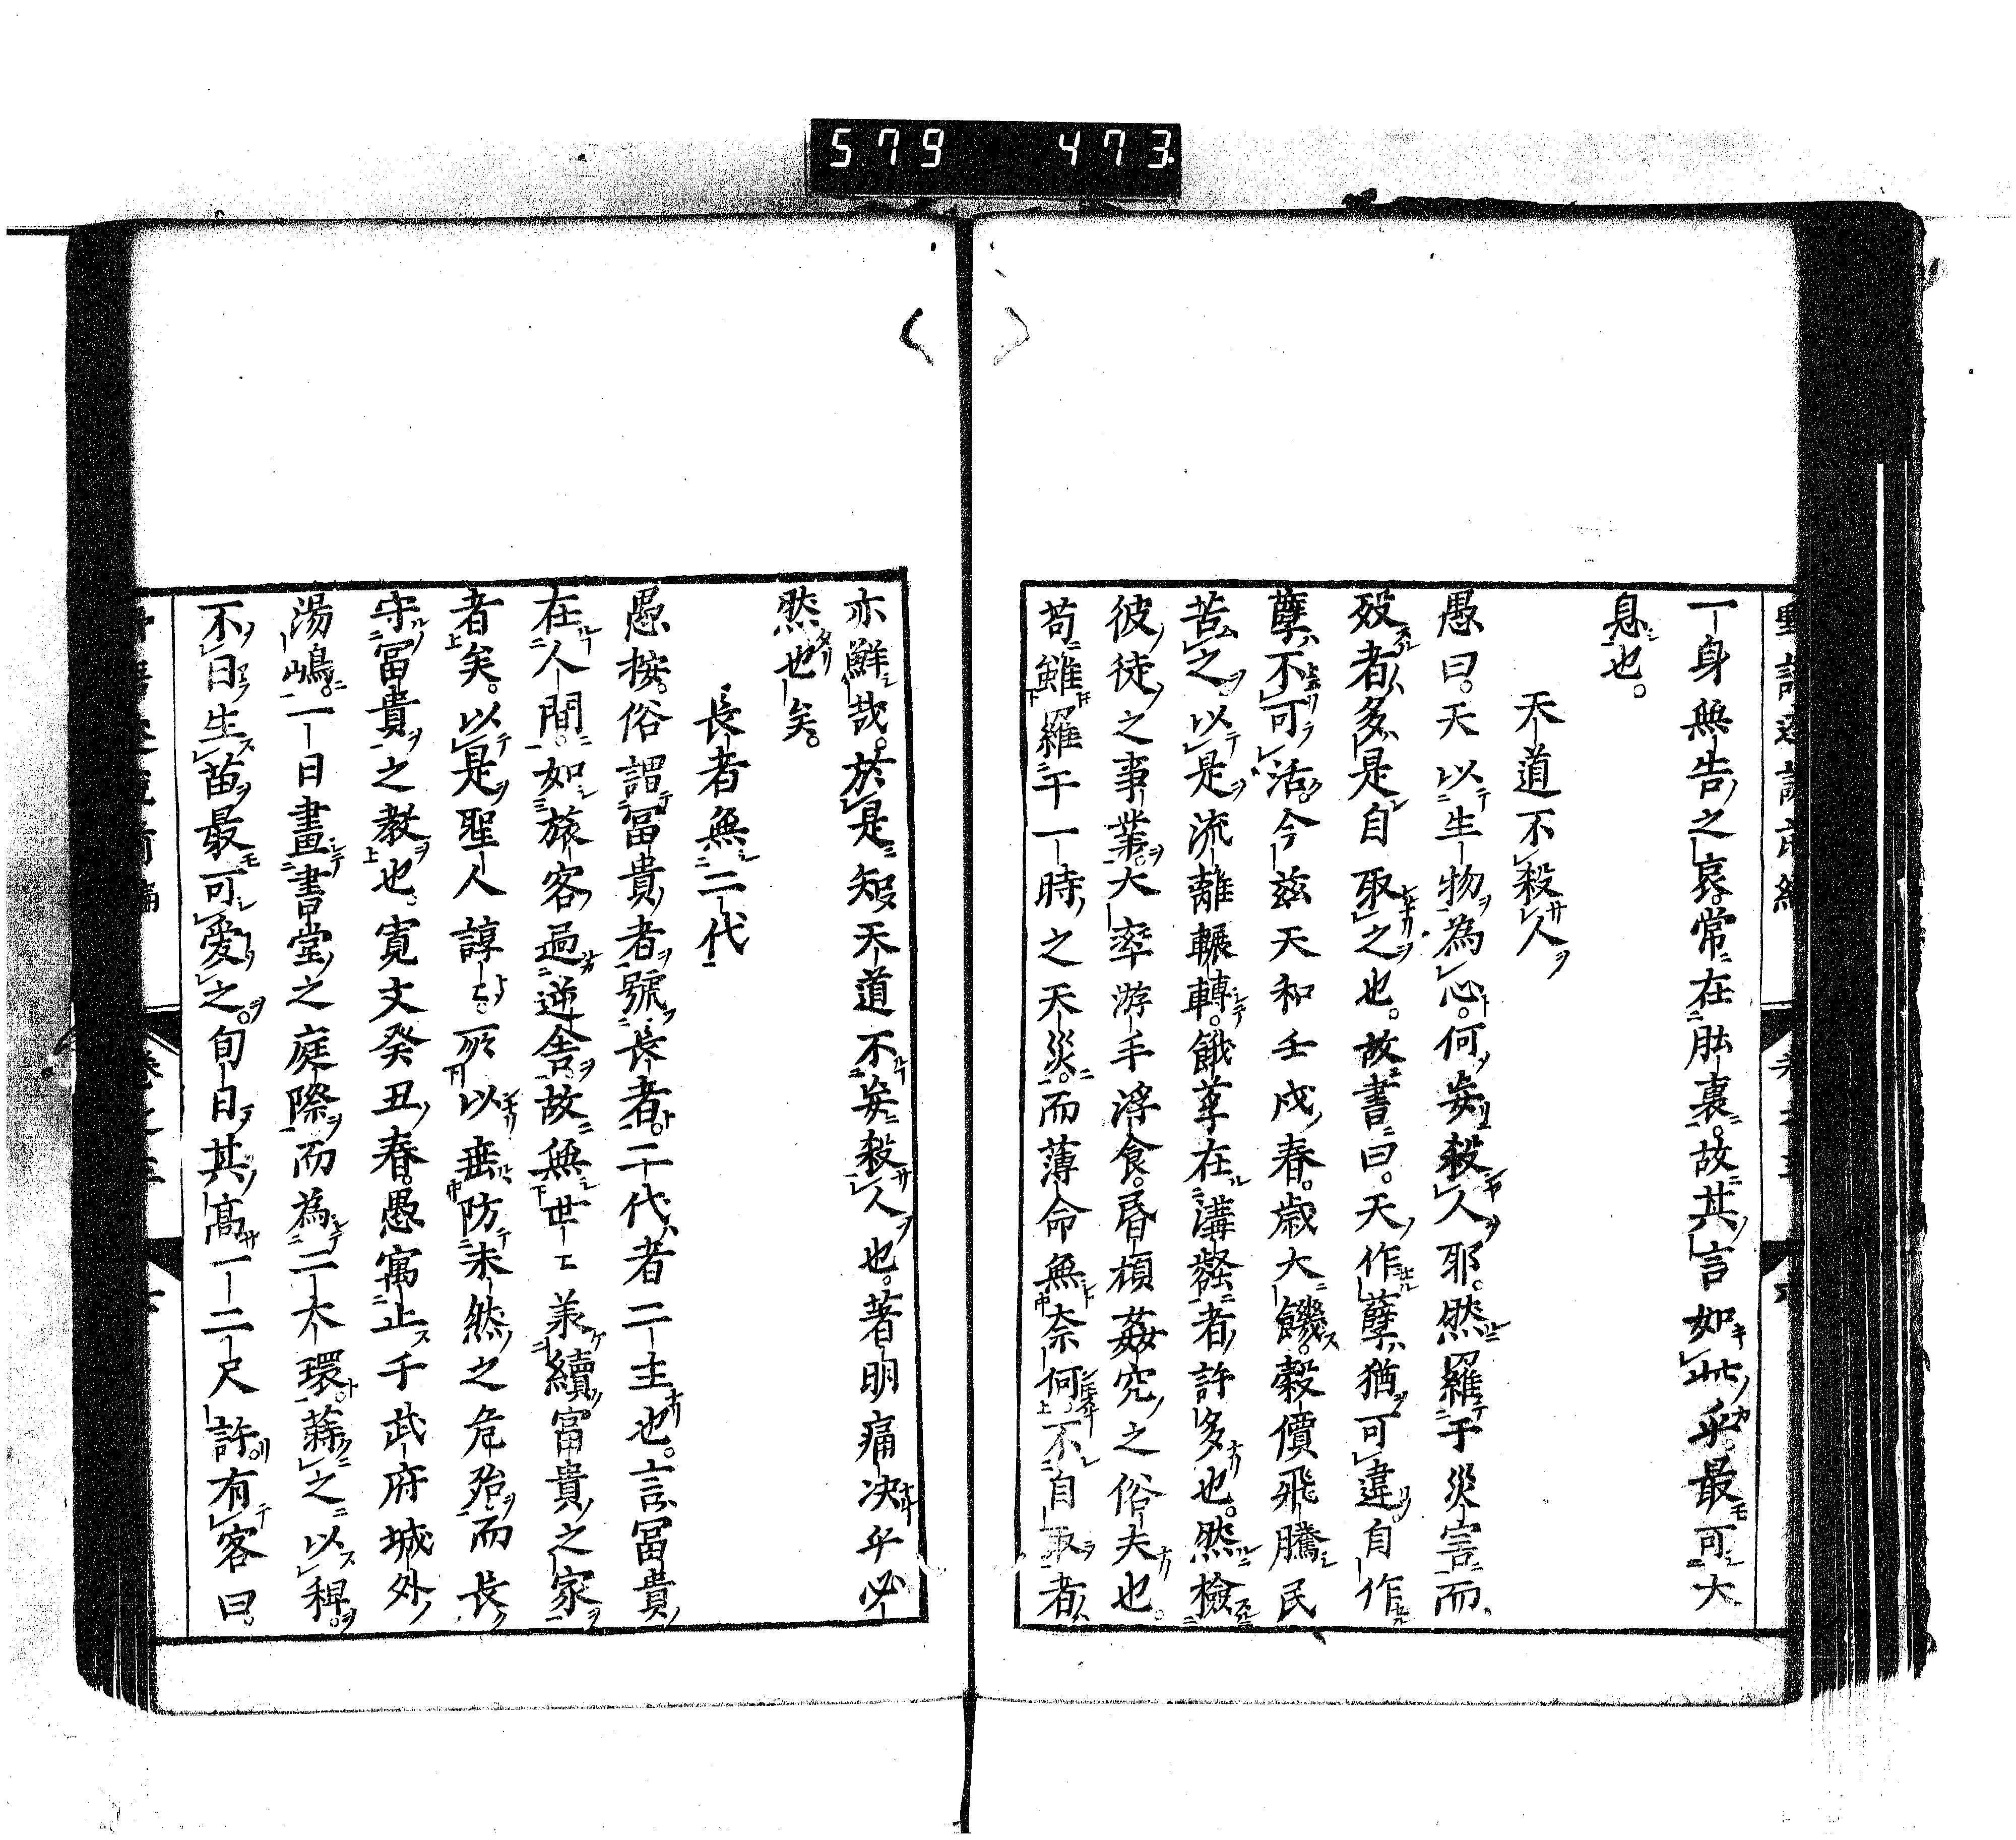 579 473
一身無告之哀常在肚裏故其言如此乎最可大
息也。
天道不殺人
愚曰。天以生物為心。何妄殺人耶。然羅于災害而
歿者多是自取之也。故書曰。天作孽猶可違自作
孽不可活今茲天和壬戌春。歳大饑。穀價飛騰民
苦之。以是流離輾轉。餓莩在溝壑者許多也。然檢
彼徒之事業。大率游手浮食。昏頑姦宄之俗夫也。
苟雖羅于一時之天災。而薄命無奈何不自取者
亦鮮哉。於是知天道不妄殺人也。著明痛決乎必
然也矣。
長者無二代
愚按。俗謂冨貴者號長者二代者二主也。言冨貴
在人間。如旅客過逆舎故無世〻兼續富貴之家
者矣。以是聖人諄〻。所以垂防未然之危殆而長
守冨貴之教也。寛文癸丑春。愚寓止千武府城外
湯嶋。一日畫書堂之庭際而為二大環蒔之以稗。
不日生苗最可愛之。旬日其高一二尺許有客曰。